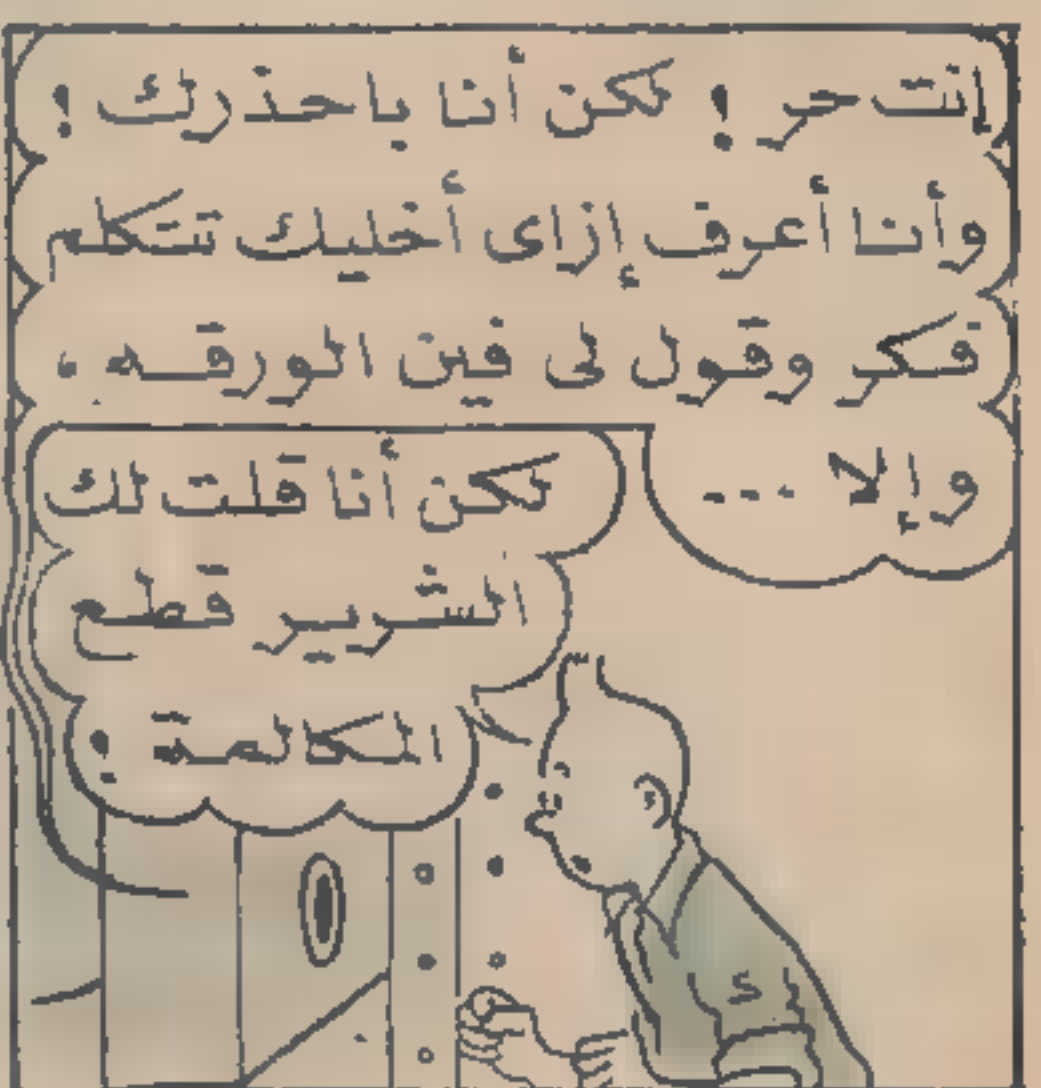 إنت حر ! لكن أنا باحذرك !
وأنا أعرف إزاى أخليك تتكلم
فكر وقول لى فين الورقه ،
وإلا ...
لكن أنا قلت لك
الشرير قطع
المكالمة !